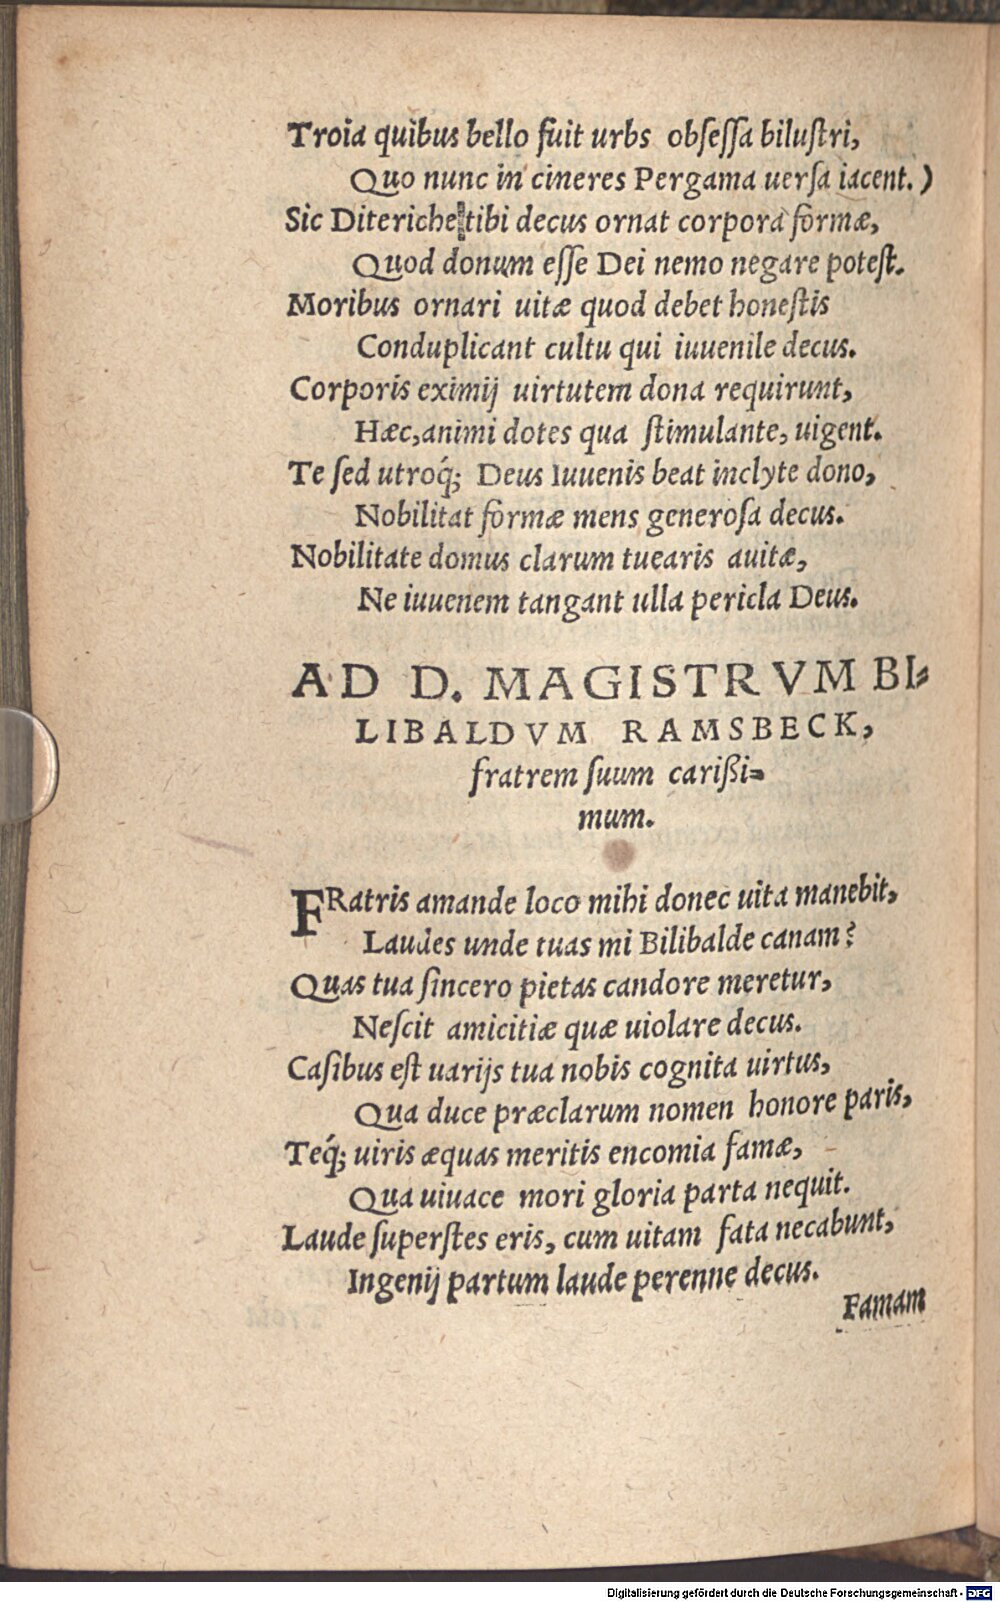 Troia quibus bello fuit urbs obſeſſa biluſtri,
Quo nunc in cineres Pergama uerſa iacent.)
Sic Diteriche tibi decus ornat corpora formæ,
Quod donum eſſe Dei nemo negare poteſt.
Moribus ornari uitæ quod debet honeſtis
Conduplicant cultu qui iuuenile decus.
Corporis eximij uirtutem dona requirunt,
Hæc, animi dotes qua ſtimulante, uigent.
Te ſed utroq́; Deus Iuuenis beat inclyte dono,
Nobilitat formæ mens generoſa decus.
Nobilitate domus clarum tuearis auitæ,
Ne iuuenem tangant ulla pericla Deus.
AD D. MAGISTRVM BI⸗
LIBALDVM RAMSBECK,
fratrem ſuum carißi⸗
mum.
FRatris amande loco mihi donec uita manebit,
Laudes unde tuas mi Bilibalde canam?
Quas tua ſincero pietas candore meretur,
Neſcit amicitiæ quæ uiolare decus.
Caſibus eſt uarijs tua nobis cognita uirtus,
Qua duce præclarum nomen honore paris,
Teq́; uiris æquas meritis encomia famæ,
Qua uiuace mori gloria parta nequit.
Laude ſuperſtes eris, cum uitam fata necabunt,
Ingenij partum laude perenne decus.
Famam
Digitalisierung gefördert durch die Deutsche Forschungsgemeinschaft - DFG